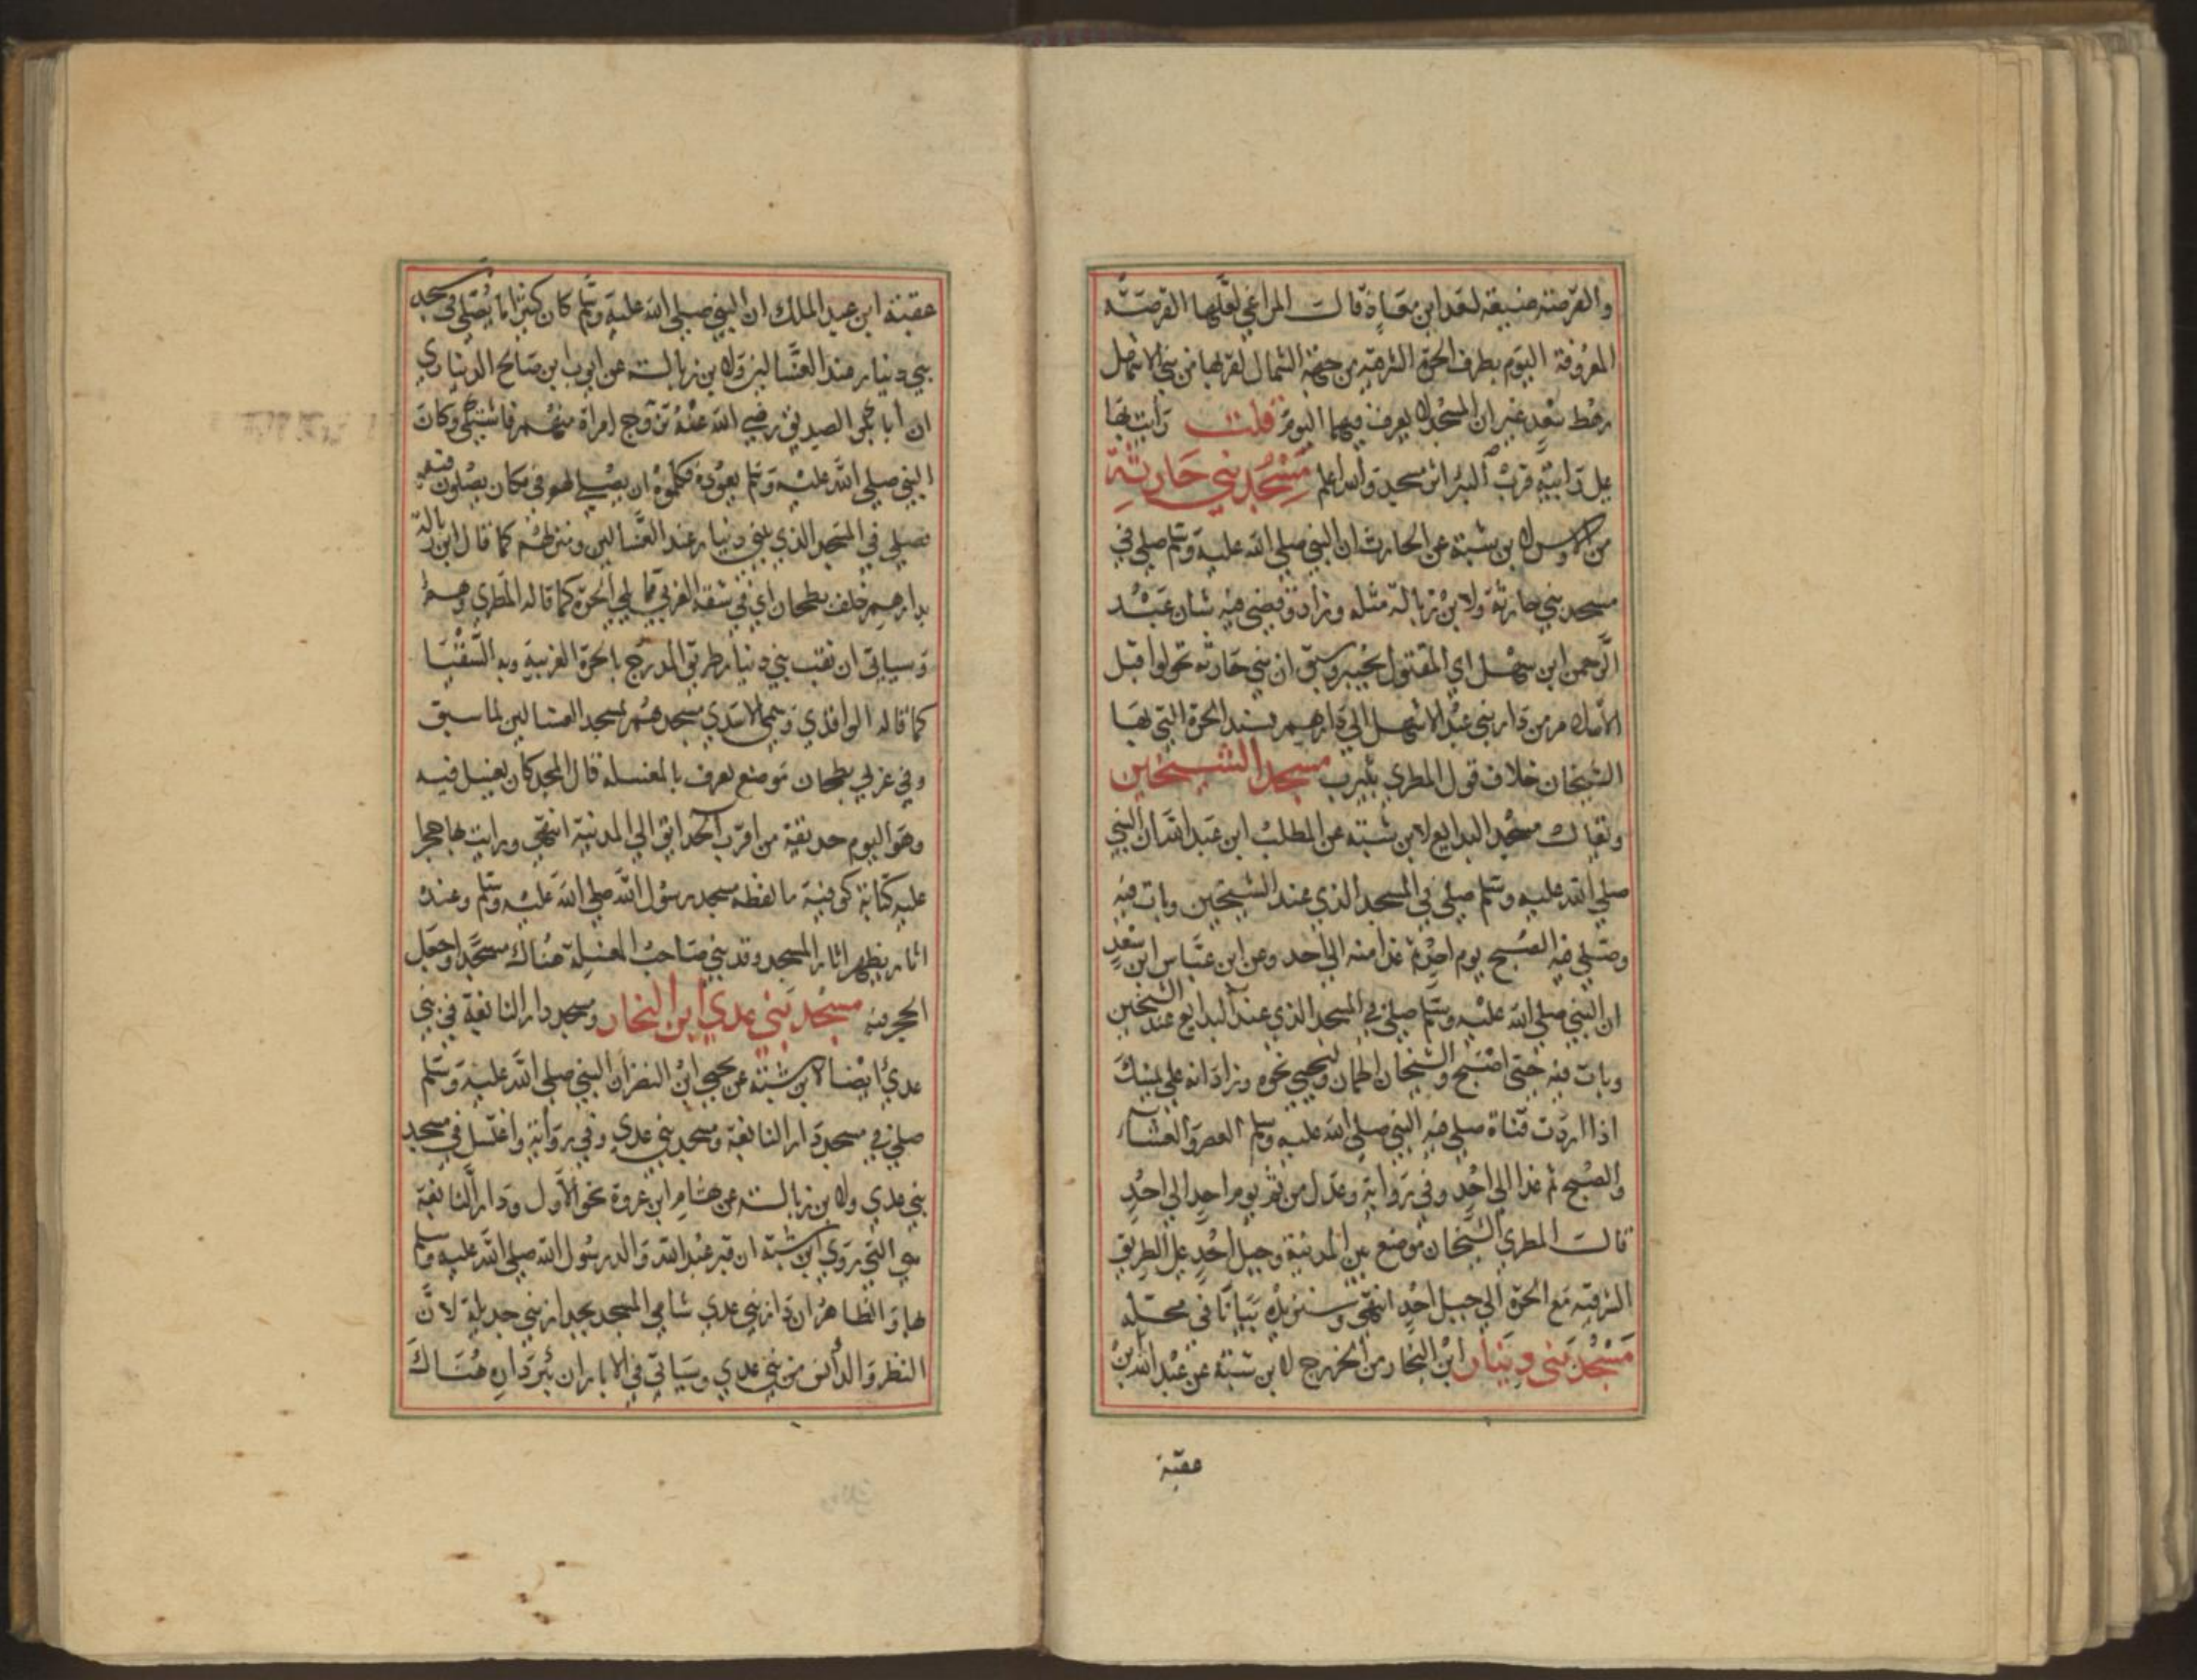 والقرصه ضيعة لسعد ابن معاذ قالـــ المراغي لعلها القرصه
المعروفة اليوم بطرف الحرة الشرقية من جهة الشمال لقربها من بني الاشهل
رهط سعد غير ان المسجد لا يعرف فيها اليوم قلت رايت بها
على رابية قرب البئر اثر مسجد والله اعلم مسجد بني حارثة
من الاوس لابن شبة عن الحارث ان النبي صلي الله عليه وسلم صلي في
مسجد بني حارثة ولابن زبالة مثله وزاد وقضي فيه شان عبد
الرحمن ابن سهل اي المقتول بخيبر وسبق ان بني حارثه تحولوا قبل
الاسلام من دار بني عبد الاشهل الي دارهم بسند الحرة التي بها
الشيخان خلاف قول المطري بيثرب مسجد الشيخين
ويقال مسجد البدايع لابن شبته عن المطلب ابن عبد الله ان النبي
صلي الله عليه وسلم صلي في المسجد الذي عند الشيخين وبات فيه
وصلي فيه الصبح يوم احد ثم غدا منه الي احد وعن ابن عباس ابن سعد
ان النبي صلي الله عليه وسلم صلي في المسجد الذي عند البدايع عند الشيخين
وبات فيه حتى اصبح والشيخان اطمان وليحيي نحوه وزاد انه على يمينك
اذا اردت قناة صلي فيه النبي صلي الله عليه وسلم العصر والعشاء
والصبح ثم غدا الي احد وفي رواية وعدل من ثم يوم احد الي احد
قالت المطري الشيخان موضع بين المدينة وجبل احد على الطريق
الشرقيه مع الحرة الي جبل احد انتهي وسنزيده بيانا في محله
مسجد بني دينار ابن النجار من الخزرج لابن شبة عن عبد الله بن
عقبة
عقبة ابن عبد الملك ان النبي صلي الله عليه وسلم كان كثيرا ما يصلي في مسجد
بني دينار عند الغسالين ولابن زبالة عن ايوب ابن صالح الديناري
ان ابا بكر الصديق رضي الله عنه تزوج امراة منهم فاشتكي وكان
النبي صلي الله عليه وسلم يعوده فكلموه ان يصلي لهم في مكان يصلون فيه
فصلي في المسجد الذي ببني دينار عند الغسالين ومنزلهم كما قال ابن زبالة
بدارهم خلف بطحان اي في شقه الغربي مما يلي الحرة كما قاله المطري وهم
وسياتي ان نقب بني دينار طريق المدرج بالحرة الغربية وبه السقيا
كما قاله الواقدي وسمي الاسدي مسجدهم بمسجد الغسالين لما سبق
وفي غربي بطحان موضع يعرف بالمغسلة قال المجد كان يغسل فيه
وهو اليوم حديقة من اقرب الحدايق الي المدينة انتهي ورايت بها حجرا
عليه كتابة كوفية ما لفظه مسجد رسول الله صلي الله عليه وسلم وعنده
اثار يظهر اثار المسجد وقد بني صاحب المغسلة هناك مسجدا وجعل
الحجر فيه مسجد بني عدي ابن النجار ومسجد دار النابغة في بني
عدي ايضا لابن شبته عن يحيى ابن النضر ان النبي صلي الله عليه وسلم
صلي في مسجد دار النابغة ومسجد بني عدي وفي رواية واغتسل في مسجد
بني عدي ولابن زبالة عن هشام ابن عروة نحو الاول ودار النابغة
هي التي روي ابن شبة ان قبر عبد الله والد رسول الله صلي الله عليه وسلم
بها والظاهر ان دار بني عدي شامي المسجد بجدار بني جديلة لان
النظر والد انس من بني عدي وسياتي في الابار ان بئر داره هناك